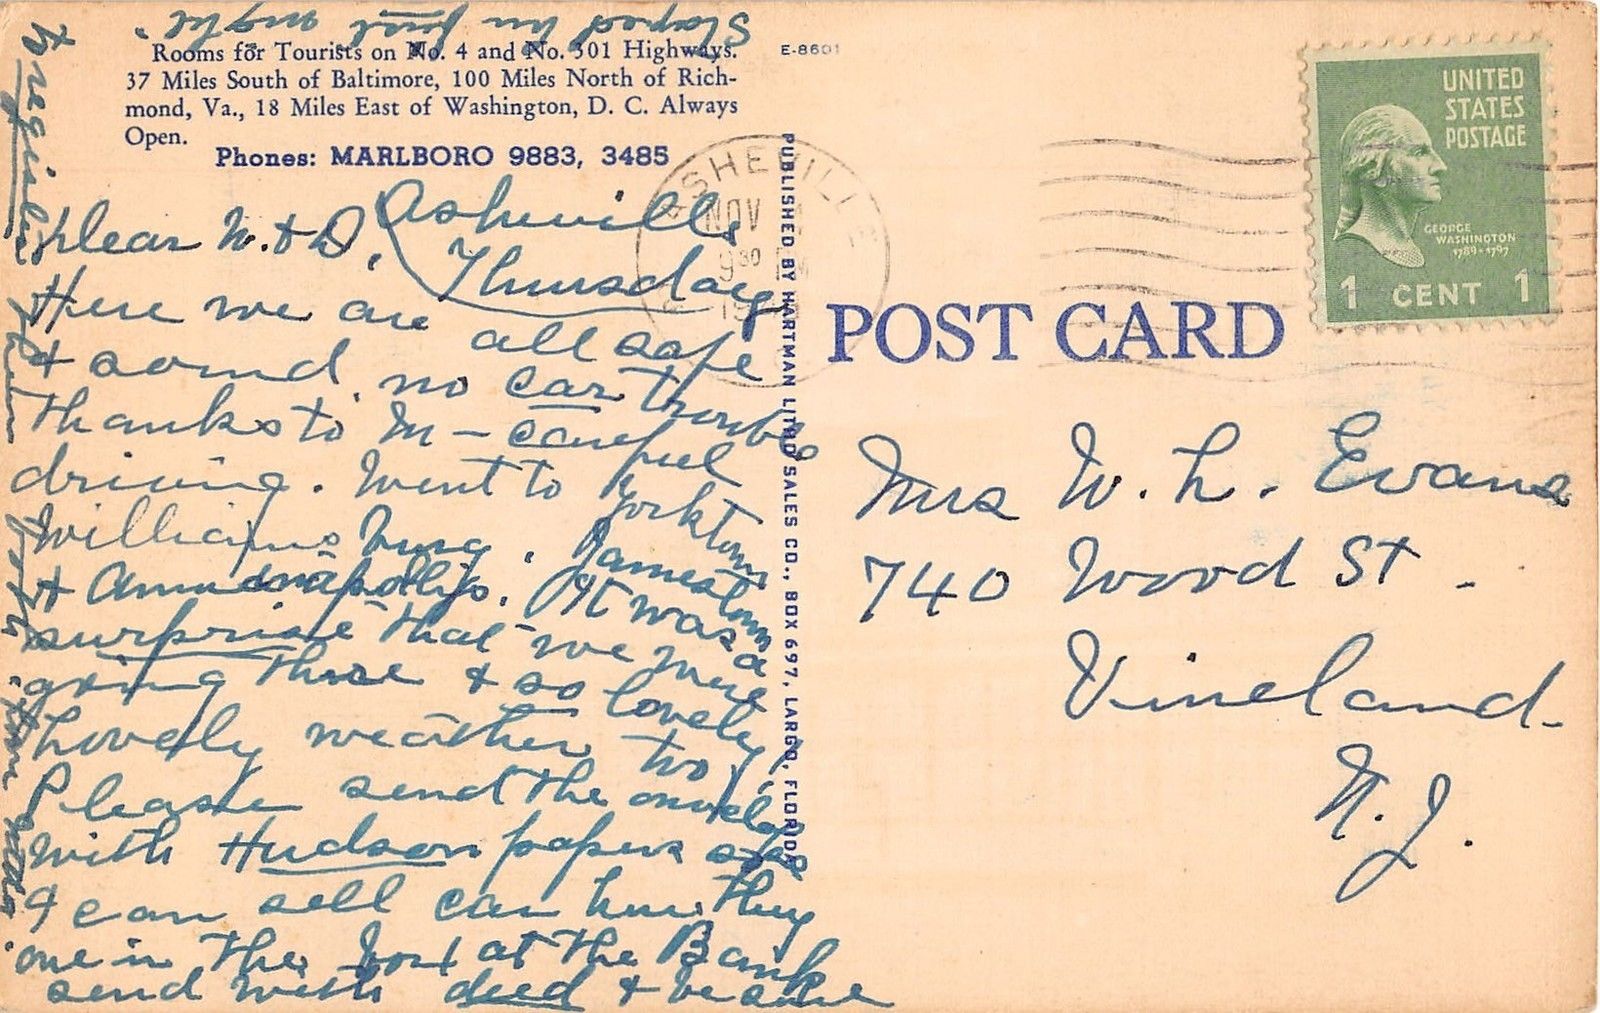 Stayed in first night.
Rooms for Tourists on No. 4 and No. 301 Highways.
37 Miles South of Baltimore, 100 Miles North of Rich-
mond, Va., 18 Miles East of Washington, D. C. Always
Open.
Phones: MARLBORO 9883, 3485
E-8601
Asheville
Thursday
Dear W. + D.,
Here we are all safe
+ sound. no car trouble
thanks to M - careful
driving. Went to Yorktown
Williamsburg, Jamestown
+ Annapolis. It was a
surprise that we were
going there + so lovely
Lovely weather too.
Please send the envelope
with Hudson papers so
I can sell car here. They
are in the box at the Bank
send with deed + be sure
to register them both.
PUBLISHED BY HARTMAN LITHO SALES CO., BOX 697, LARGO, FLORIDA
ASHEVILLE
NOV
9 30 PM
POST CARD
UNITED
STATES
POSTAGE
GEORGE
WASHINGTON
1789-1797
1 CENT 1
Mrs W. L. Evans
740 Wood St.
Vineland.
N. J.